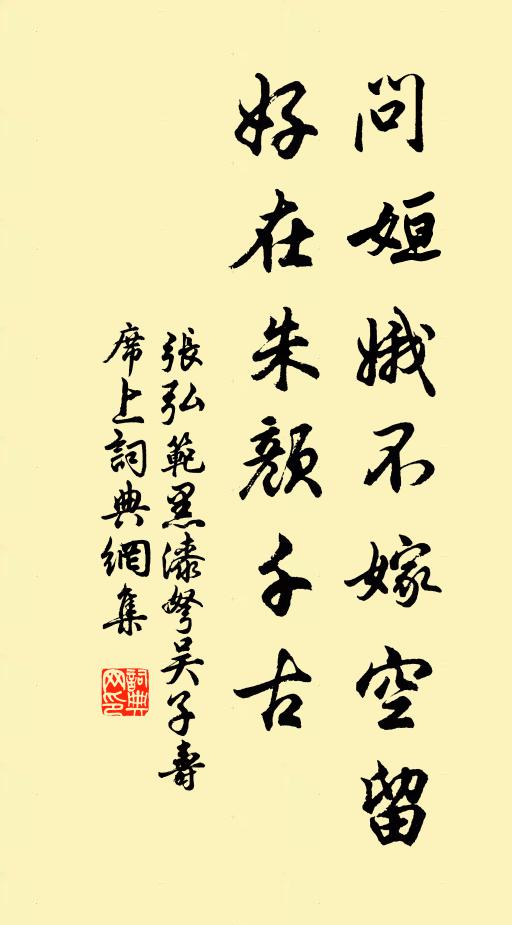 問姮娥不嫁空留
好在朱顏千古
張弘範黑漆弩吳子壽
席上詞典網集
詞典
网印